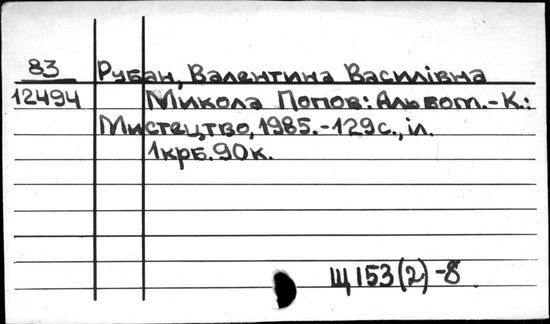 83 Рубан, Валентина Василівна
12494 Микола Попов: Альбом.-К.:
Мистецтво, 1985.-129с., іл.
1крб.90к.
Щ153(2)-8